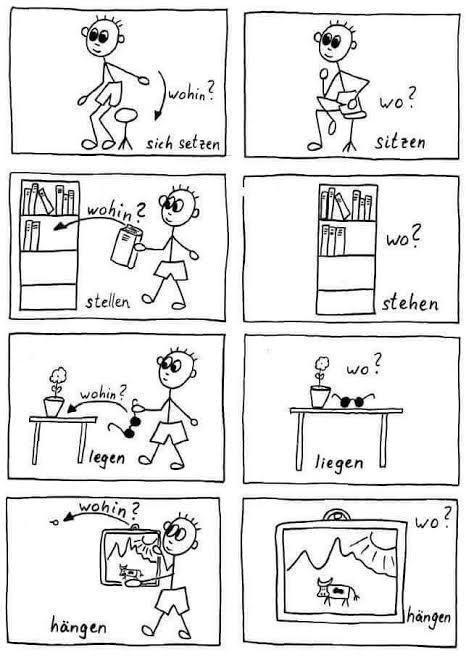 wohin?
sich setzen
wo?
sitzen
wohin?
stellen
wo?
stehen
wohin?
legen
wo?
liegen
wohin?
hängen
wo?
hängen